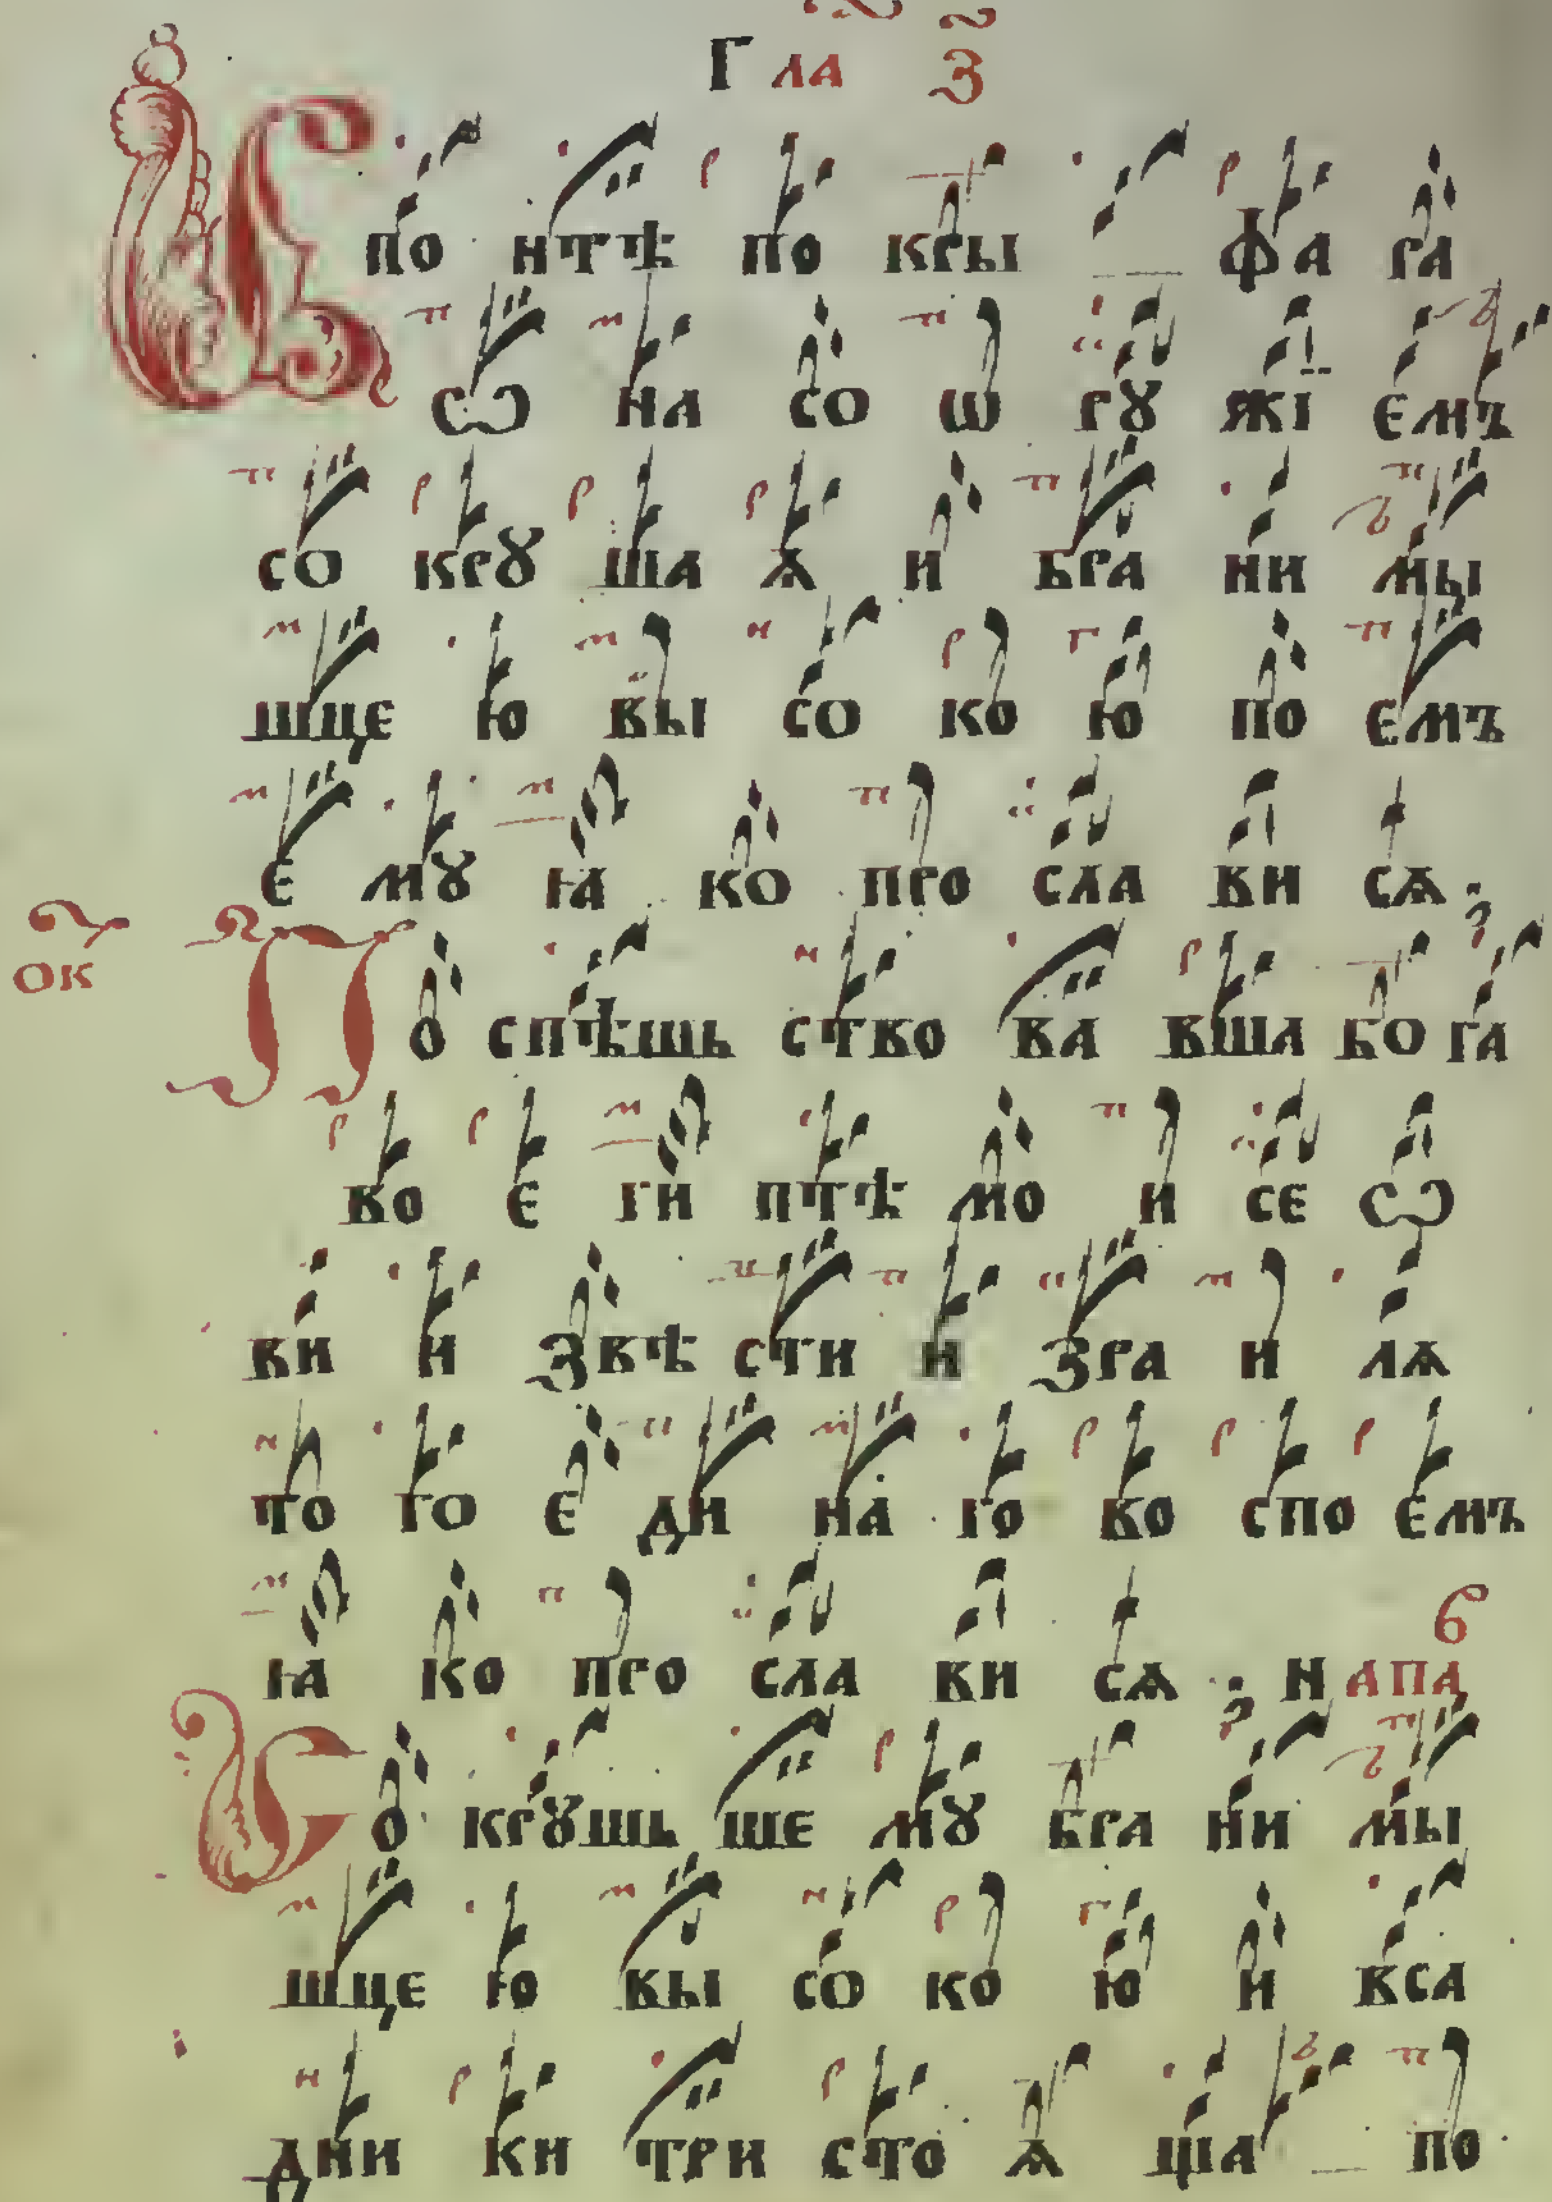 Гла З
И по нтѣ по кры _ фа ра
сѡ на со ѡ рꙋ жї емъ
со крꙋ ша ѧ и бра ни мы
шце ю вы со ко ю по емъ
е мꙋ ꙗ ко про сла ви сѧ
ок По спѣшь ство ва вша бо га
во е ги птѣ мо и се ѡ
ви и звѣ сти и зра и лѧ
то го е ди на го во спо емъ
ꙗ ко про сла ви сѧ напа б
Со крꙋшь ше мꙋ бра ни мы
шце ю вы со ко ю и вса
дни ки три сто ѧ ща _ по